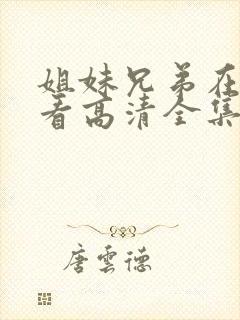 姐妹兄弟在
看高清全集
唐雲德